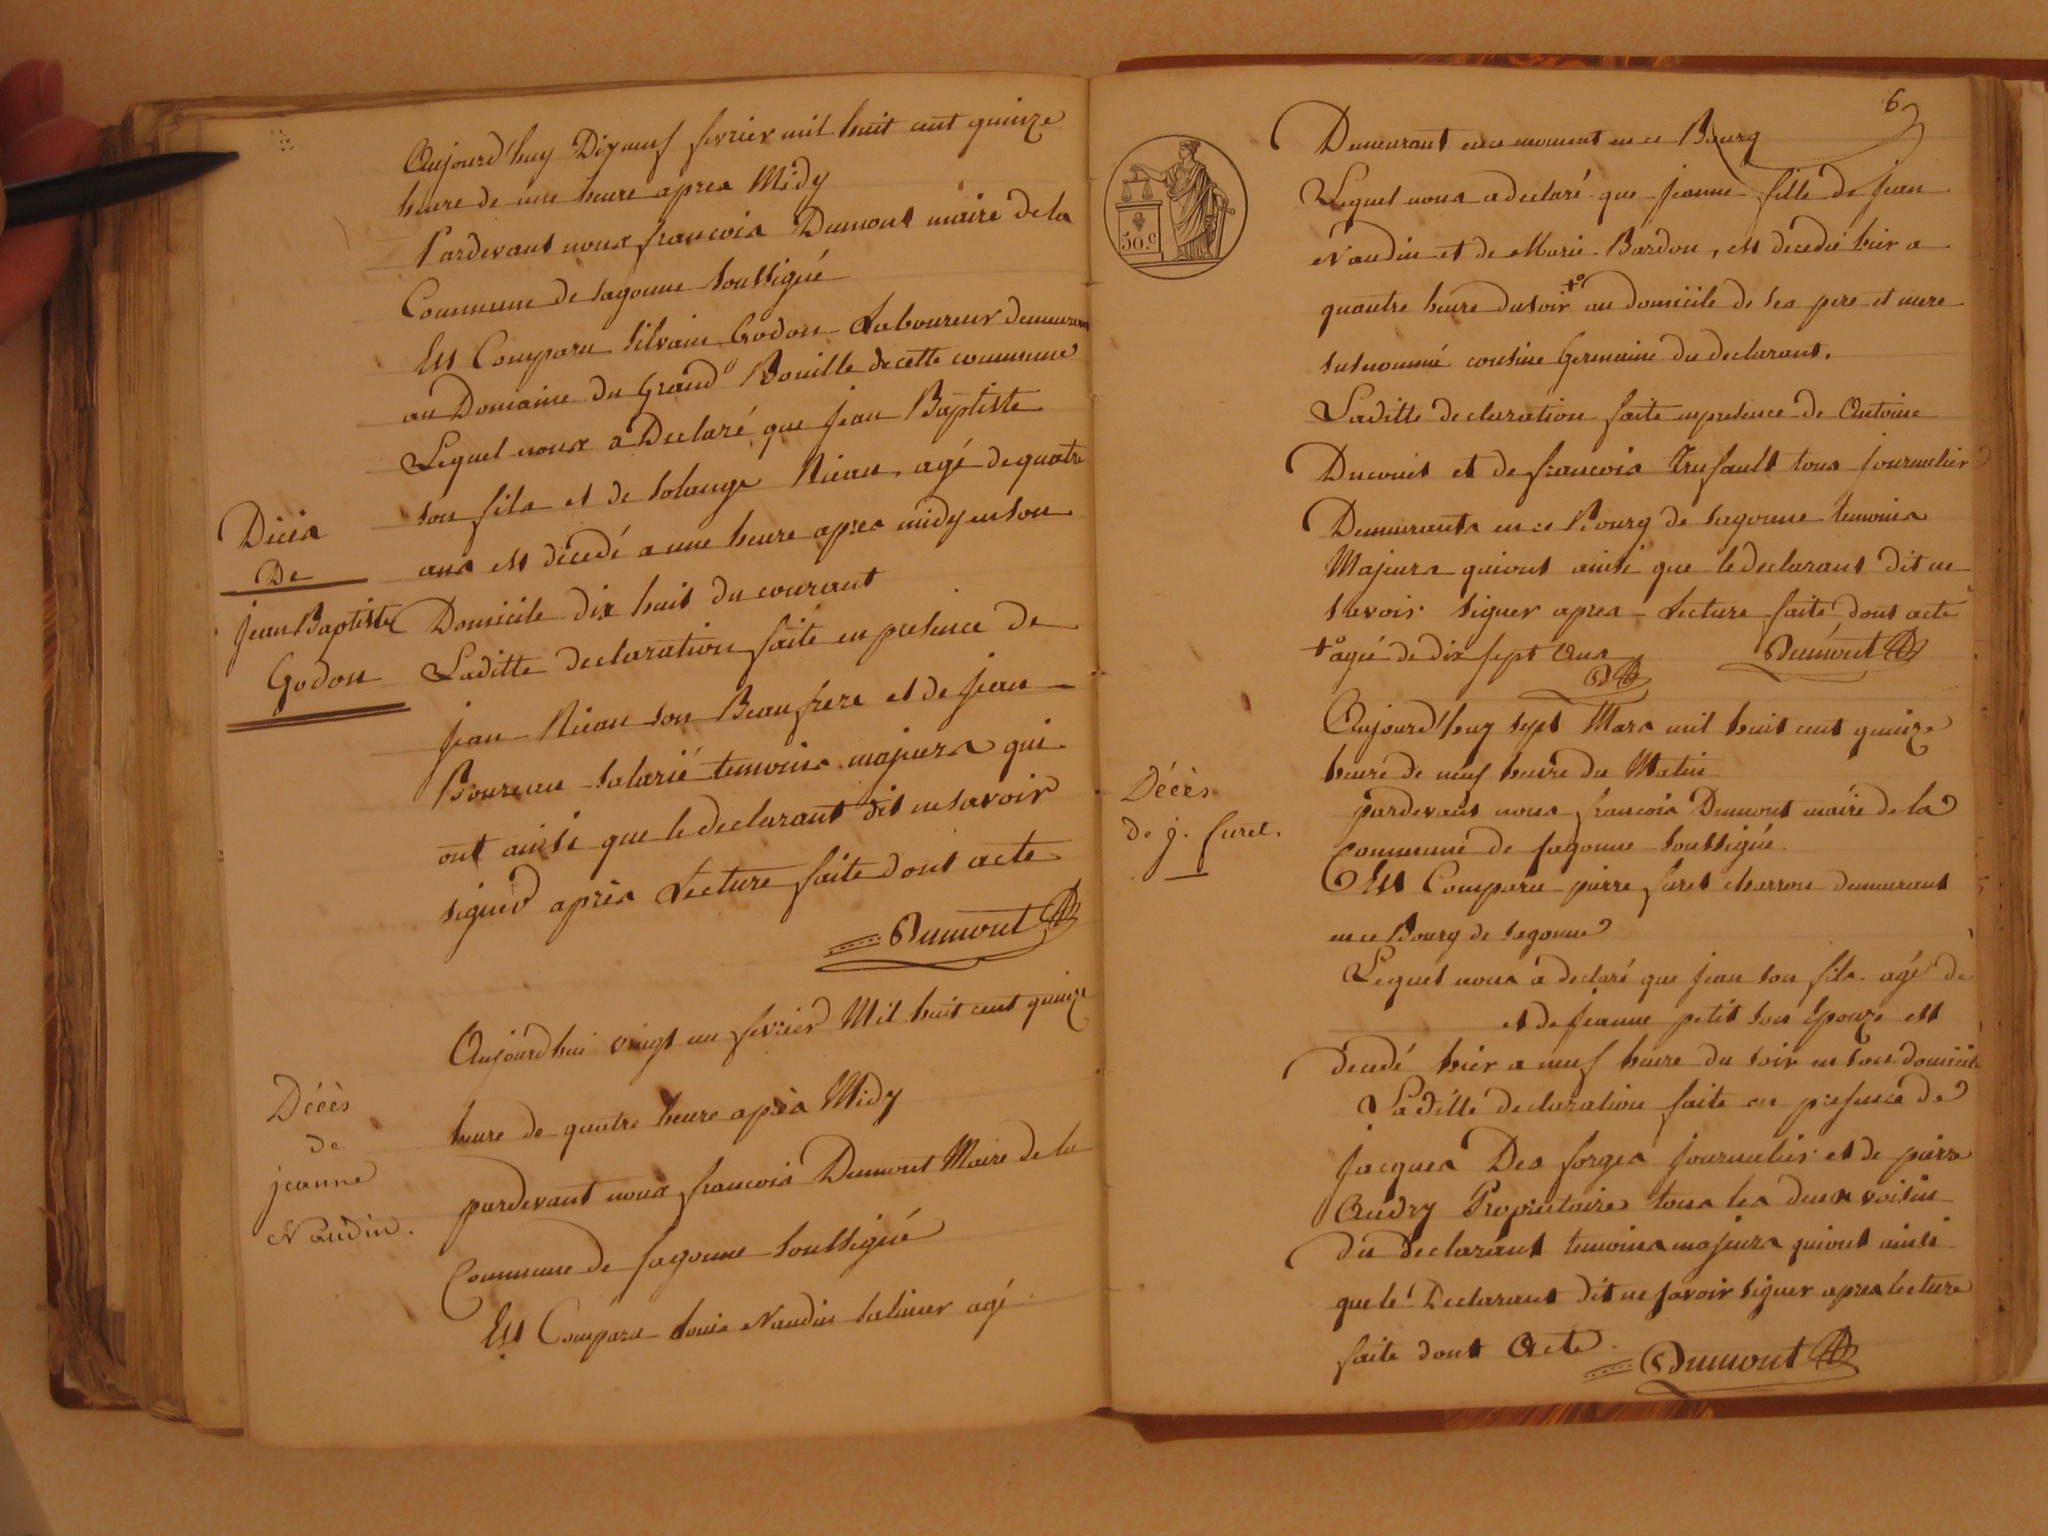 Aujourd'huy Dix neuf fevrier mil huit cent quinze
heure de une heure apres Midy
Pardevant nous francois Dumont maire de la
Commune de Sagonne Soussigné
Est Comparu Silvain Godon Laboureur demeurant
au Domaine du Grand Bouille de cette commune
Lequel nous a Declaré que jean Baptiste
son fils et de Solange Rieau, agé de quatre
ans est décedé a une heure apres midy en son
Décés
De
jean Baptiste
Godon
Domicile dix huit du courant
Laditte declaration faite en presence de
jean Rieau son Beaufrere et de jean
Boureau Salarié temoins majeurs qui
ont ainsi que le declarant dit ne savoir
signer après Lecture faite dont acte
Dumont
Aujourdhui vingt un fevrier Mil huit cent quinze
heure de quatre heure après Midy
pardevant nous francois Dumont Maire de la
Commune de Sagonne Soussigné
Est Comparu Louis Naudin agé
Décès
de
jeanne
Naudin.
6
50.c
Demeurant en ce moment en ce Bourg
Lequel nous a declaré que jeanne fille de jean
Naudin et de Marie Bardon, est decedé hier a
quautre heure du soir +° au domicile de ses pere et mere
susnommé cousine Germaine du declarant.
Laditte declaration faite en presence de Antoine
et de francois Trufault tous journalier
Demeurants en ce Bourg de Sagonne temoins
Majeurs qui ont ainsi que le declarant dit ne
savoir signer apres Lecture faite dont acte
+° agée de dix sept Ans
Dumont
Aujourd'huy sept Mars mil huit cent quinze
heure de neuf heure du Matin
pardevant nous francois Dumont maire de la
Commune de Sagonne Soussigné
Est Comparu pierre furet charron demeurant
en ce Bourg de Sagonne
Lequel nous a declaré que jean son fils agé de
et de jeanne petit son Epouze est
decedé hier a neuf heure du soir en son domicile
Laditte declaration faite en presence de
jacques Des forges journalier et de pierre
Audry Propriétaire tous les deux voisin
du declarant temoins majeurs qui ont ainsi
que le Declarant dit ne savoir signer apres lecture
faite dont Acte
Dumont
Décès
de j. furet.